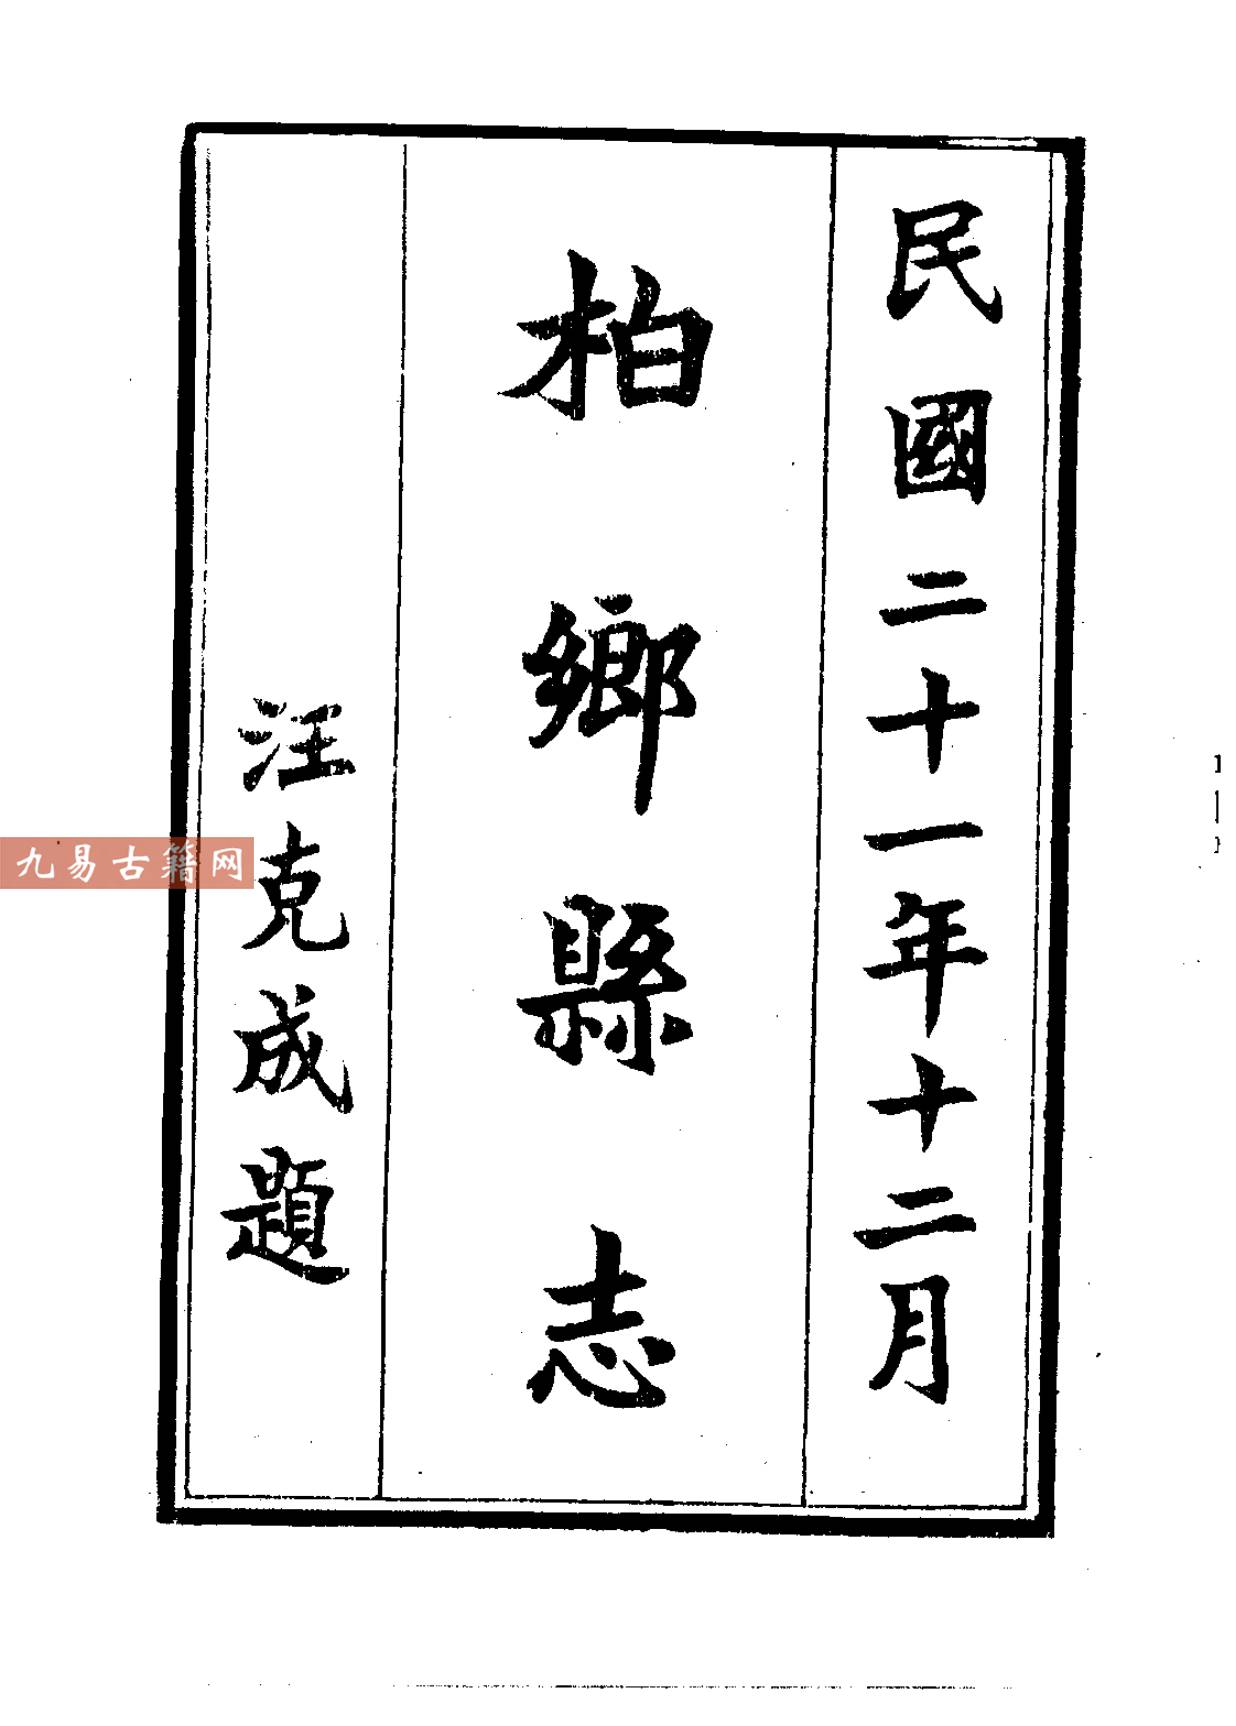 民國二十一年十二月
柏鄉縣志
汪克成題
九易古籍网